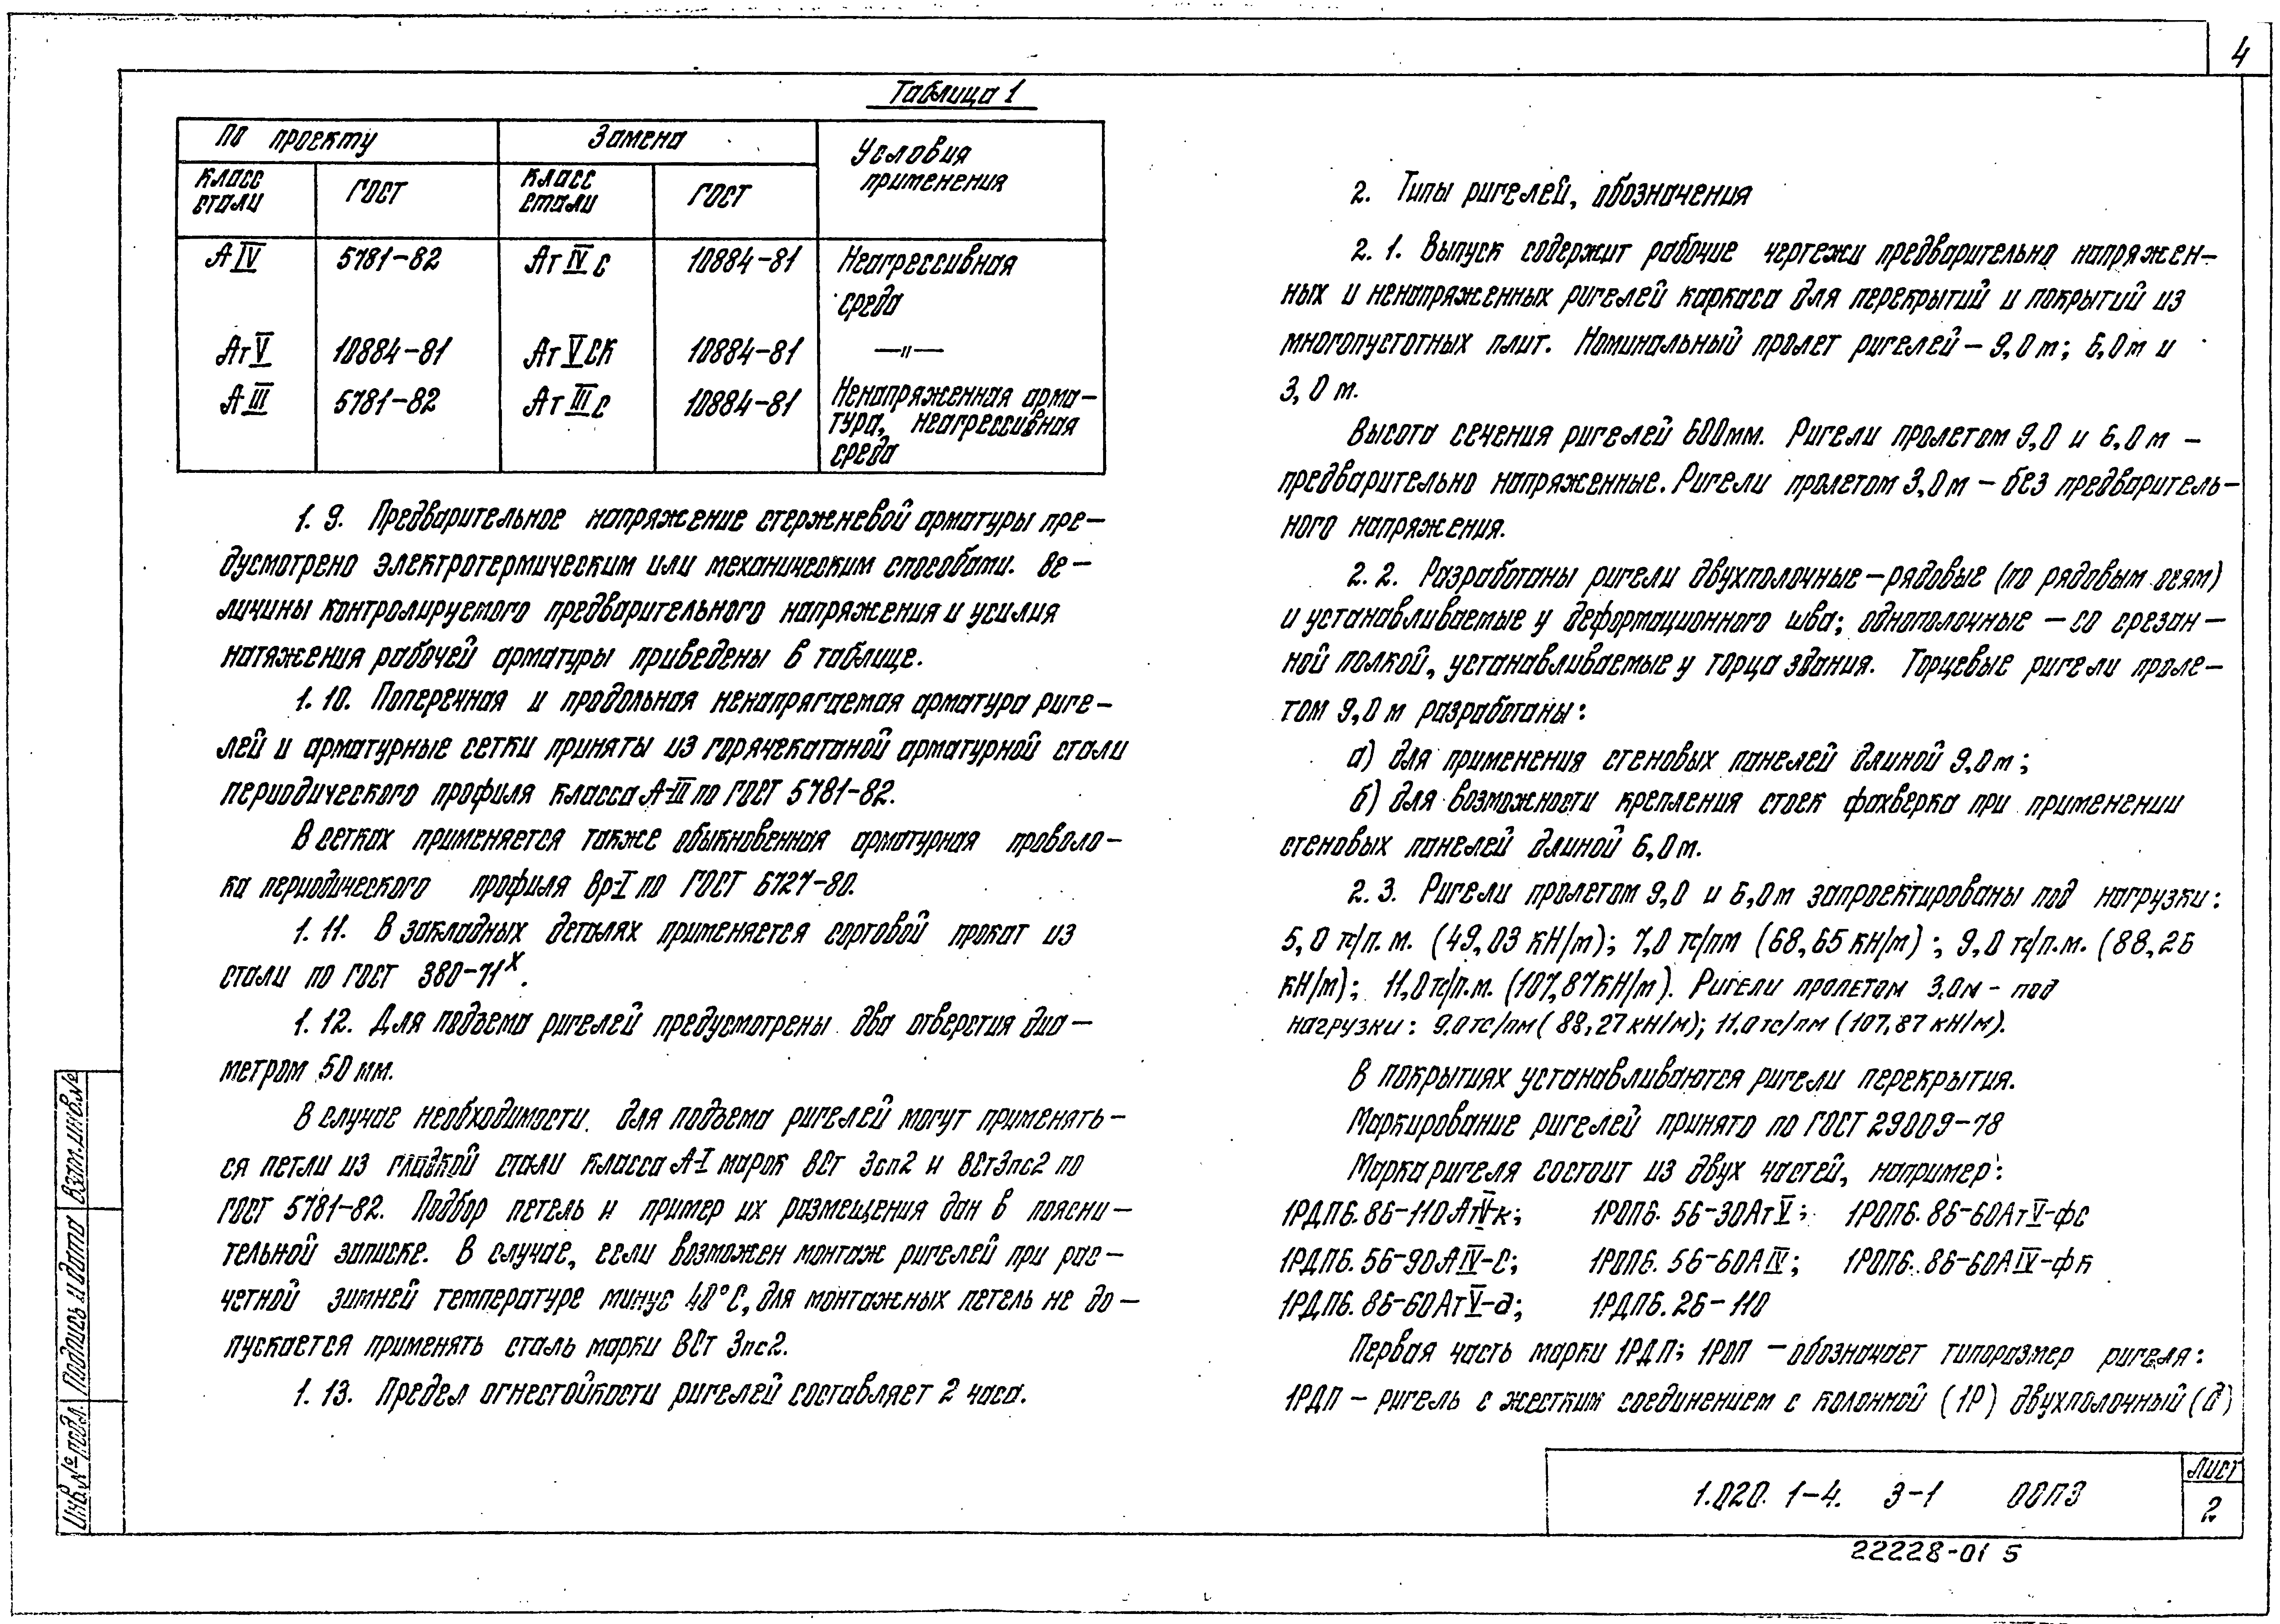 4
Таблица 1
По проекту
Замена
Условия применения
Класс стали
ГОСТ
Класс стали
ГОСТ
А IV 5781-82 Ат IV С 10884-81 Неагрессивная
среда
Ат V 10884-81 Ат V СК 10884-81 —"—
А III 5781-82 Ат III С 10884-81 Ненапряженная арма-
тура, неагрессивная
среда
1. 9. Предварительное напряжение стержневой арматуры пре-
дусмотрено электротермическим или механическим способами. Ве-
личины контролируемого предварительного напряжения и усилия
натяжения рабочей арматуры приведены в таблице.
1. 10. Поперечная и продольная ненапрягаемая арматура риге-
лей и арматурные сетки приняты из горячекатаной арматурной стали
периодического профиля класса А-III по ГОСТ 5781-82.
В сетках применяется также обыкновенная арматурная проволо-
ка периодического профиля Вр-I по ГОСТ 6727-80.
1. 11. В закладных деталях применяется сортовой прокат из
стали по ГОСТ 380-71ˣ.
1. 12. Для подъема ригелей предусмотрены два отверстия диа-
метром 50 мм.
В случае необходимости для подъема ригелей могут применять-
ся петли из гладкой стали класса А-I марок ВСт 3сп2 и ВСт3пс2 по
ГОСТ 5781-82. Подбор петель и пример их размещения дан в поясни-
тельной записке. В случае, если возможен монтаж ригелей при рас-
четной зимней температуре минус 40°С, для монтажных петель не до-
пускается применять сталь марки ВСт 3пс2.
1. 13. Предел огнестойкости ригелей составляет 2 часа.
2. Типы ригелей, обозначения
2. 1. Выпуск содержит рабочие чертежи предварительно напряжен-
ных и ненапряженных ригелей каркаса для перекрытий и покрытий из
многопустотных плит. Номинальный пролет ригелей - 9,0 м; 6,0 м и
3,0 м.
Высота сечения ригелей 600мм. Ригели пролетом 9,0 и 6,0 м -
предварительно напряженные. Ригели пролетом 3,0 м - без предваритель-
ного напряжения.
2. 2. Разработаны ригели двухполочные - рядовые (по рядовым осям)
и устанавливаемые у деформационного шва; однополочные - со срезан-
ной полкой, устанавливаемые у торца здания. Торцевые ригели проле-
том 9,0 м разработаны:
а) для применения стеновых панелей длиной 9,0м;
б) для возможности крепления стоек фахверка при применении
стеновых панелей длиной 6,0 м.
2. 3. Ригели пролетом 9,0 и 6,0 м запроектированы под нагрузки:
5,0 тс/п. м. (49,03 кН/м); 7,0 тс/пм (68,65 кН/м); 9,0 тс/п.м. (88,26
кН/м); 11,0 тс/п.м. (107,87 кН/м). Ригели пролетом 3.0м - под
нагрузки: 9.0 тс/пм (88,27 кН/м); 11.0 тс/пм (107,87 кН/м).
В покрытиях устанавливаются ригели перекрытия.
Маркирование ригелей принято по ГОСТ 23009-78
Марка ригеля состоит из двух частей, например:
1РДП6. 86-110АтV-к; 1РОП6. 56-30Ат V; 1РОП6. 86-60Ат V-фс
1РДП6. 56-90А IV-С; 1РОП6. 56-60А IV; 1РОП6. 86-60А IV-фк
1РДП6. 86-60Ат V-д; 1РДП6. 26-110
Первая часть марки 1РДП; 1РОП - обозначает типоразмер ригеля:
1РДП - ригель с жестким соединением с колонной (1Р) двухполочный (д)
Взам. инв.№
Подпись и дата
Инв.№ подл.
1.020. 1-4. 3-1 00ПЗ
Лист
2
22228-01 5